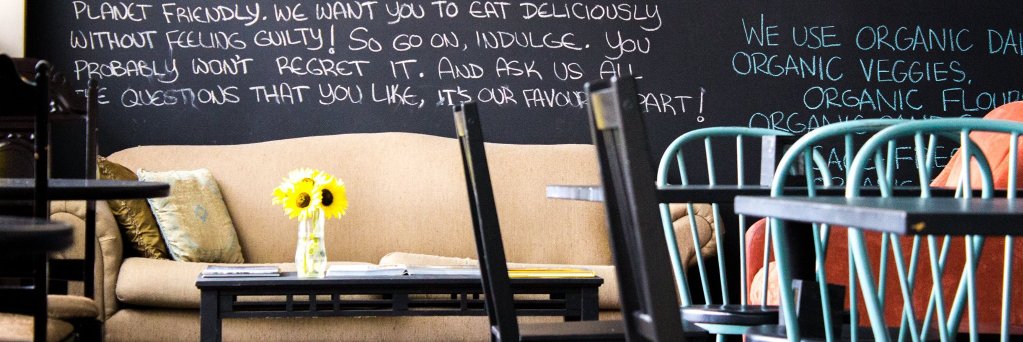 PLANET FRIENDLY. WE WANT YOU TO EAT DELICIOUSLY
WITHOUT FEELING GUILTY! SO GO ON, INDULGE. YOU
PROBABLY WON'T REGRET IT. AND ASK US ALL
THE QUESTIONS THAT YOU LIKE, IT'S OUR FAVOURITE PART!
WE USE ORGANIC
ORGANIC VEGGIES,
ORGANIC
ORGANIC